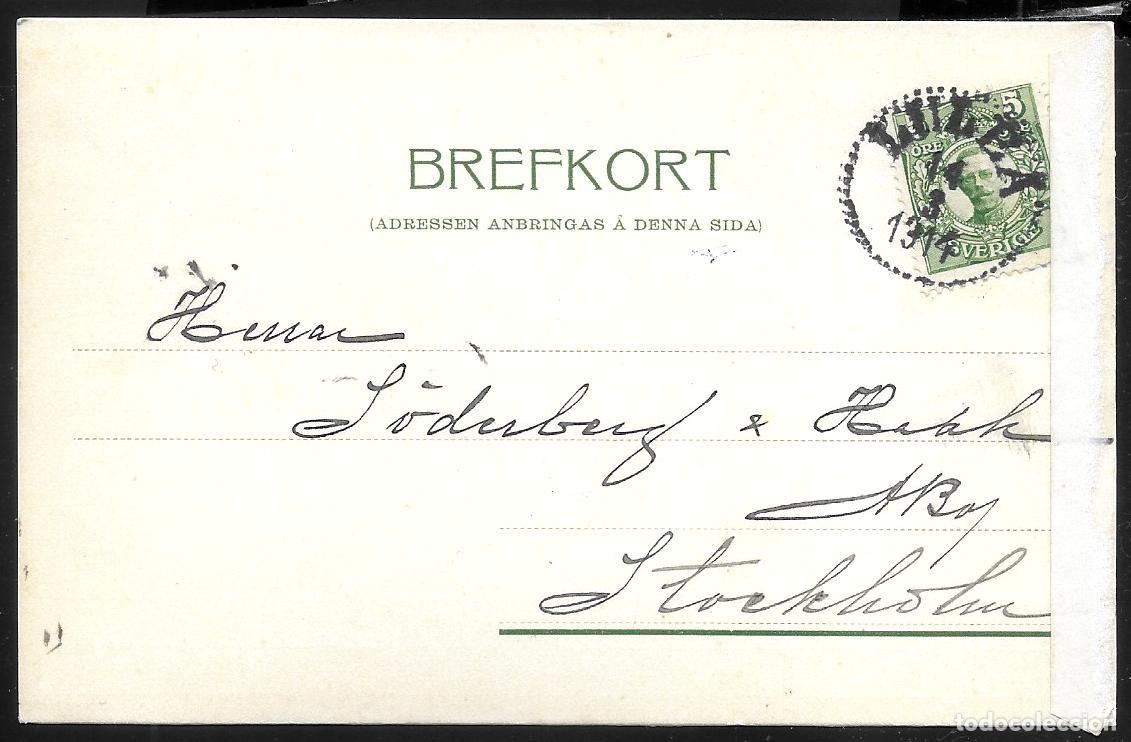 BREFKORT
(ADRESSEN ANBRINGAS Å DENNA SIDA)
5
ÖRE
SVERIGE
LULEÅ
14
3
1914
Herrar
Söderberg & Haak
AB
Stockholm
todocoleccion